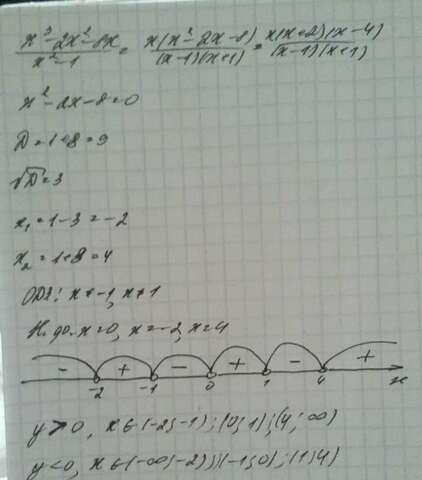 (x³-2x²-8x)/(x²-1) = x(x²-2x-8)/((x-1)(x+1)) = x(x+2)(x-4)/((x-1)(x+1))
x²-2x-8=0
D=1+8=9
√D=3
x₁=1-3=-2
x₂=1+8=4
ОДЗ: x≠-1, x≠1
Н. ф. x=0, x=-2, x=4
- + - + - +
-2 -1 0 1 4 x
y>0, x∈(-2;-1);(0;1);(4;∞)
y<0, x∈(-∞;-2);(-1;0);(1;4)